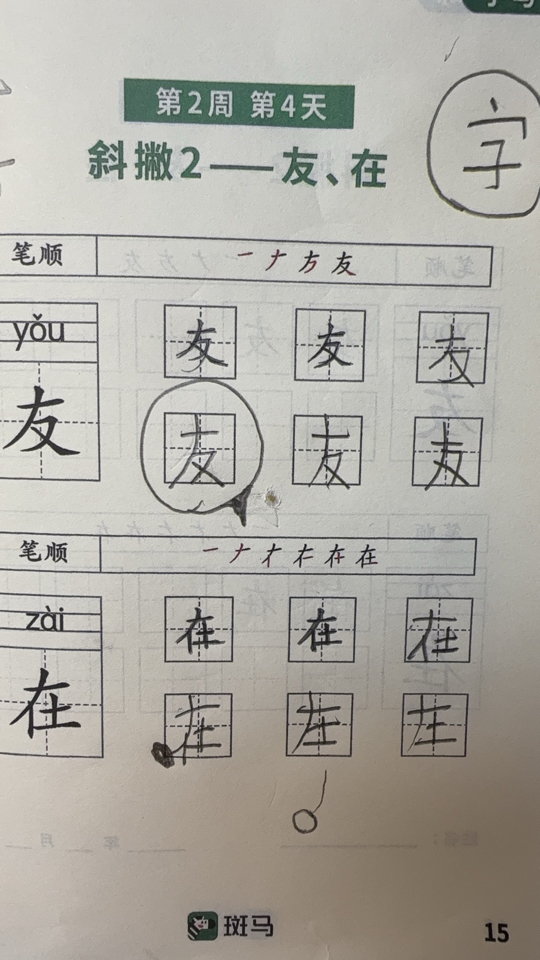 第2周 第4天
斜撇2——友、在
字
笔顺 一 ナ 方 友
yǒu 友 友 友
友 友 友 友
笔顺 一 ナ 才 在 在 在
zài 在 在 在
在 在 在 在
斑马
15